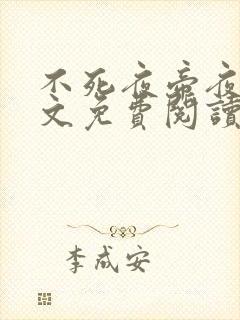 不死夜帝夜
文免費閱讀
李成安